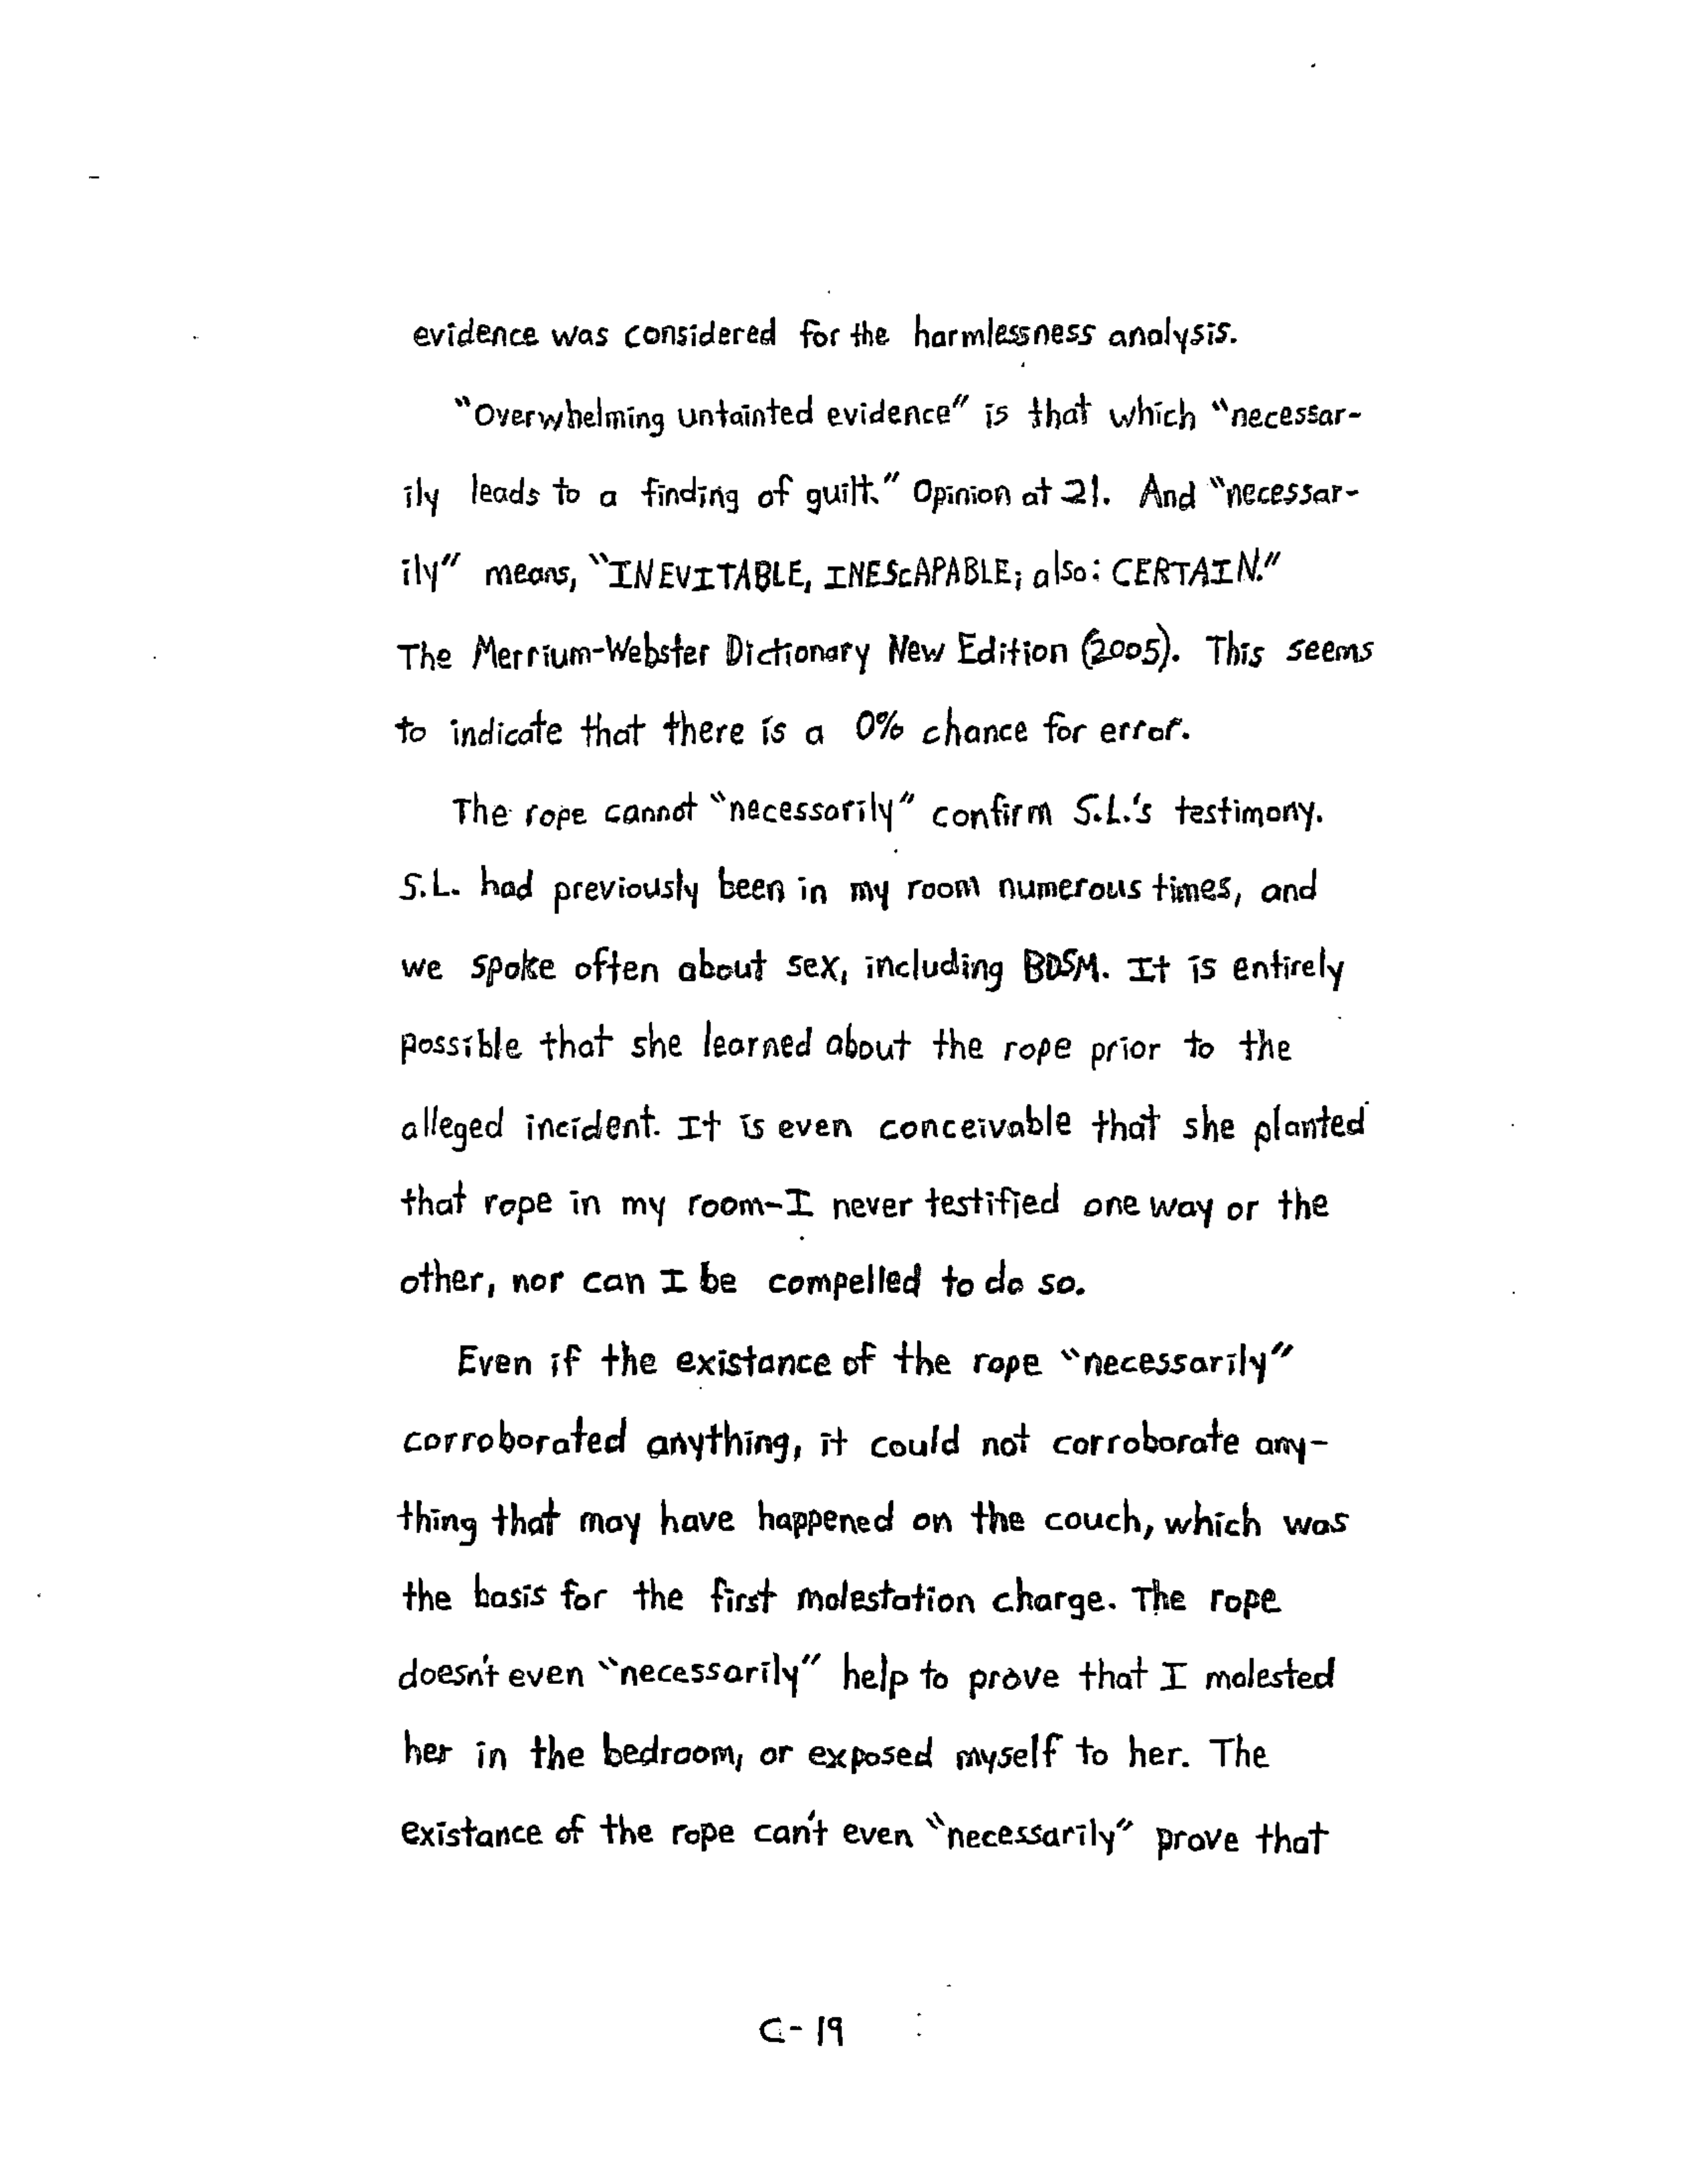 evidence was considered for the harmlessness analysis.
"Overwhelming untainted evidence" is that which "necessar-
ily leads to a finding of guilt." Opinion at 21. And "necessar-
ily" means, "INEVITABLE, INESCAPABLE; also: CERTAIN."
The Merrium-Webster Dictionary New Edition (2005). This seems
to indicate that there is a 0% chance for error.
The rope cannot "necessarily" confirm S.L.'s testimony.
S.L. had previously been in my room numerous times, and
we spoke often about sex, including BDSM. It is entirely
possible that she learned about the rope prior to the
alleged incident. It is even conceivable that she planted
that rope in my room-I never testified one way or the
other, nor can I be compelled to do so.
Even if the existance of the rope "necessarily"
corroborated anything, it could not corroborate any-
thing that may have happened on the couch, which was
the basis for the first molestation charge. The rope
doesn't even "necessarily" help to prove that I molested
her in the bedroom, or exposed myself to her. The
existance of the rope can't even "necessarily" prove that
C-19